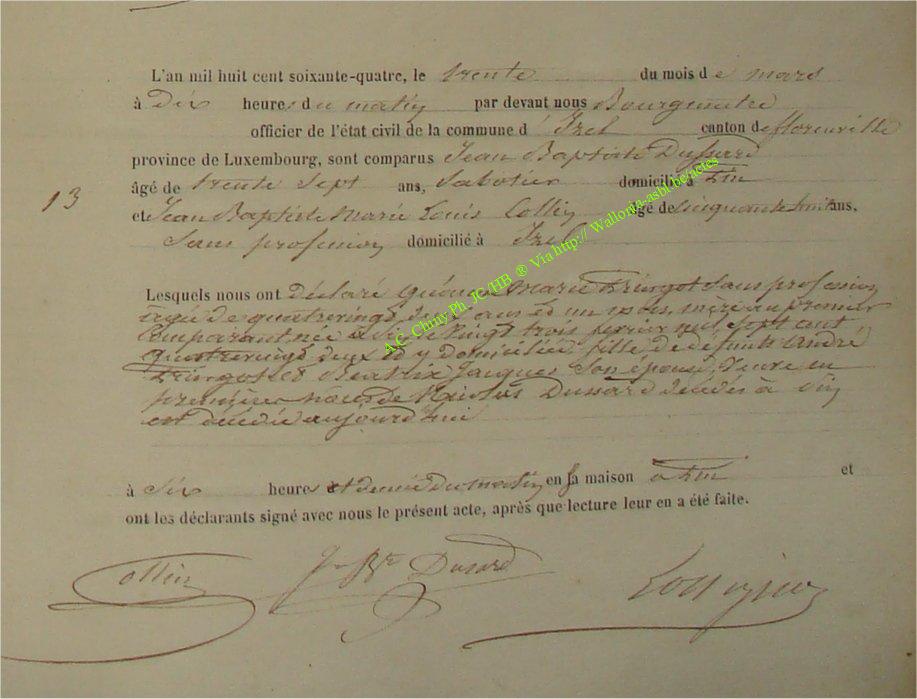 L'an mil huit cent soixante-quatre, le trente du mois de mars
à dix heures du matin par devant nous Bourgmestre
officier de l'état civil de la commune d'Izel canton de florenville
province de Luxembourg, sont comparus Jean Baptiste Dussard
âgé de trente sept ans, Sabotier domicilié à
13
et Jean Baptiste Marie Louis Collin âgé de cinquante huit ans,
Sans profession domicilié à Izel
A.C. Chiny Ph. JC/HB ® Via http://Wallonia-asbl.be/actes
Lesquels nous ont déclaré que Marie Tringot Sans profession
agée de quatrevingt deux ans et un mois, mère au premier
Comparant née à le vingt trois fevrier mil sept cent
quatrevingt deux et y domiciliée, fille de défunts André
Tringot et Beatrix Jacques Son épouse, Veuve en
premieres noces de Nicolas Dussard décédé à
est décédée aujourd'hui
à six heures et demie du matin en sa maison à et
ont les déclarants signé avec nous le présent acte, après que lecture leur en a été faite.
Collin J Bte Dusard